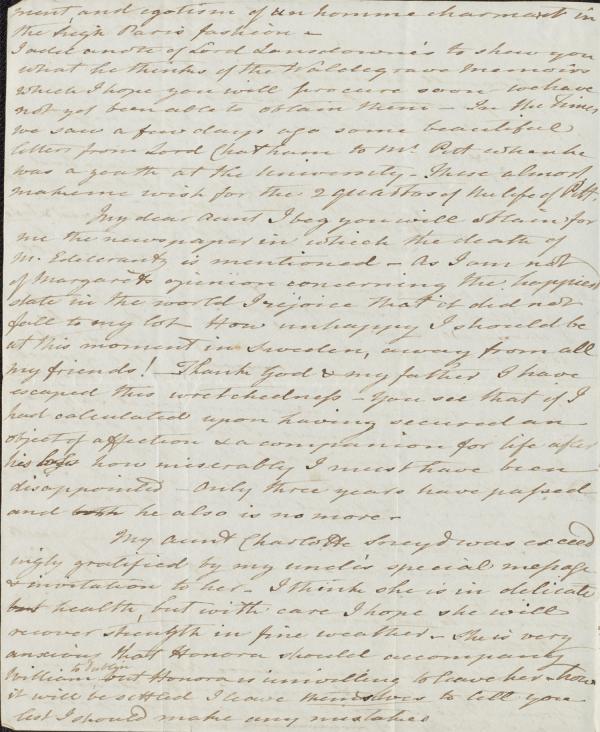 ment, and egotism of un homme charmant in
the high Paris fashion –
I add a note of Lord Lansdowne's to show you
what he thinks of the Waldegrave Memoirs
which I hope you will procure soon we have
not yet been able to obtain them – In the Times
we saw a few days ago some beautiful
letters from Lord Chatham to Mr. Pitt when he
was a youth at the University – These almost
make me wish for the 2 quartos of the life of Pitt.
My dear Aunt I beg you will obtain for
me the newspaper in which the death of
Mr. Edelcrantz is mentioned – As I am not
of Margaret's opinion concerning the happiest
state in the world I rejoice that it did not
fall to my lot – How unhappy I should be
at this moment in Sweden, away from all
my friends! – Thank God & my father I have
escaped this wretchedness – You see that if I
had calculated upon having secured an
object of affection & a companion for life after
his loss how miserably I must have been
disappointed – Only three years have passed
and he also is no more –
My aunt Charlotte Sneyd was exceed
ingly gratified by my uncle's special message
& invitation to her – I think she is in delicate
health, but with care I hope she will
recover strength in fine weather – She is very
anxious that Honora should accompany
William to Dublin but Honora is unwilling to leave her – how
it will be settled I leave themselves to tell you
lest I should make any mistakes